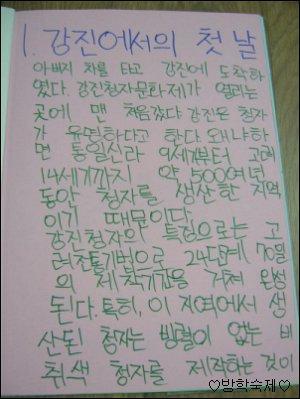 1. 강진에서의 첫 날
아빠찌 차를 타고 강진에 도착하
였다. 강진청자문화제가 열리는
곳에 맨 처음갔다. 강진은 청자
가 유명하다고 한다. 왜냐하
면 통일신라 9세기부터 고려
14세기까지 약 500여년
동안 청자를 생산한 지역
이기 때문이다.
강진청자의 특징으로는 고
려전통기법으로 24단계 70일
의 제작기간을 거쳐 완성
된다. 특히, 이 지역에서 생
산된 청자는 빙렬이 없는 비
취색 청자를 제작하는 것이
♡방학숙제♡